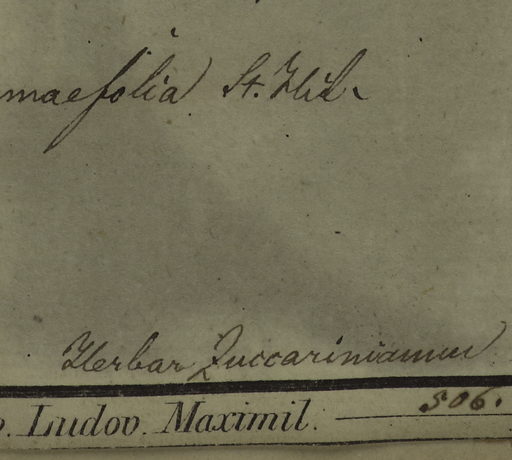 maefolia St. Hil.
Herbar Zuccarinianum
. Ludov. Maximil. 506.